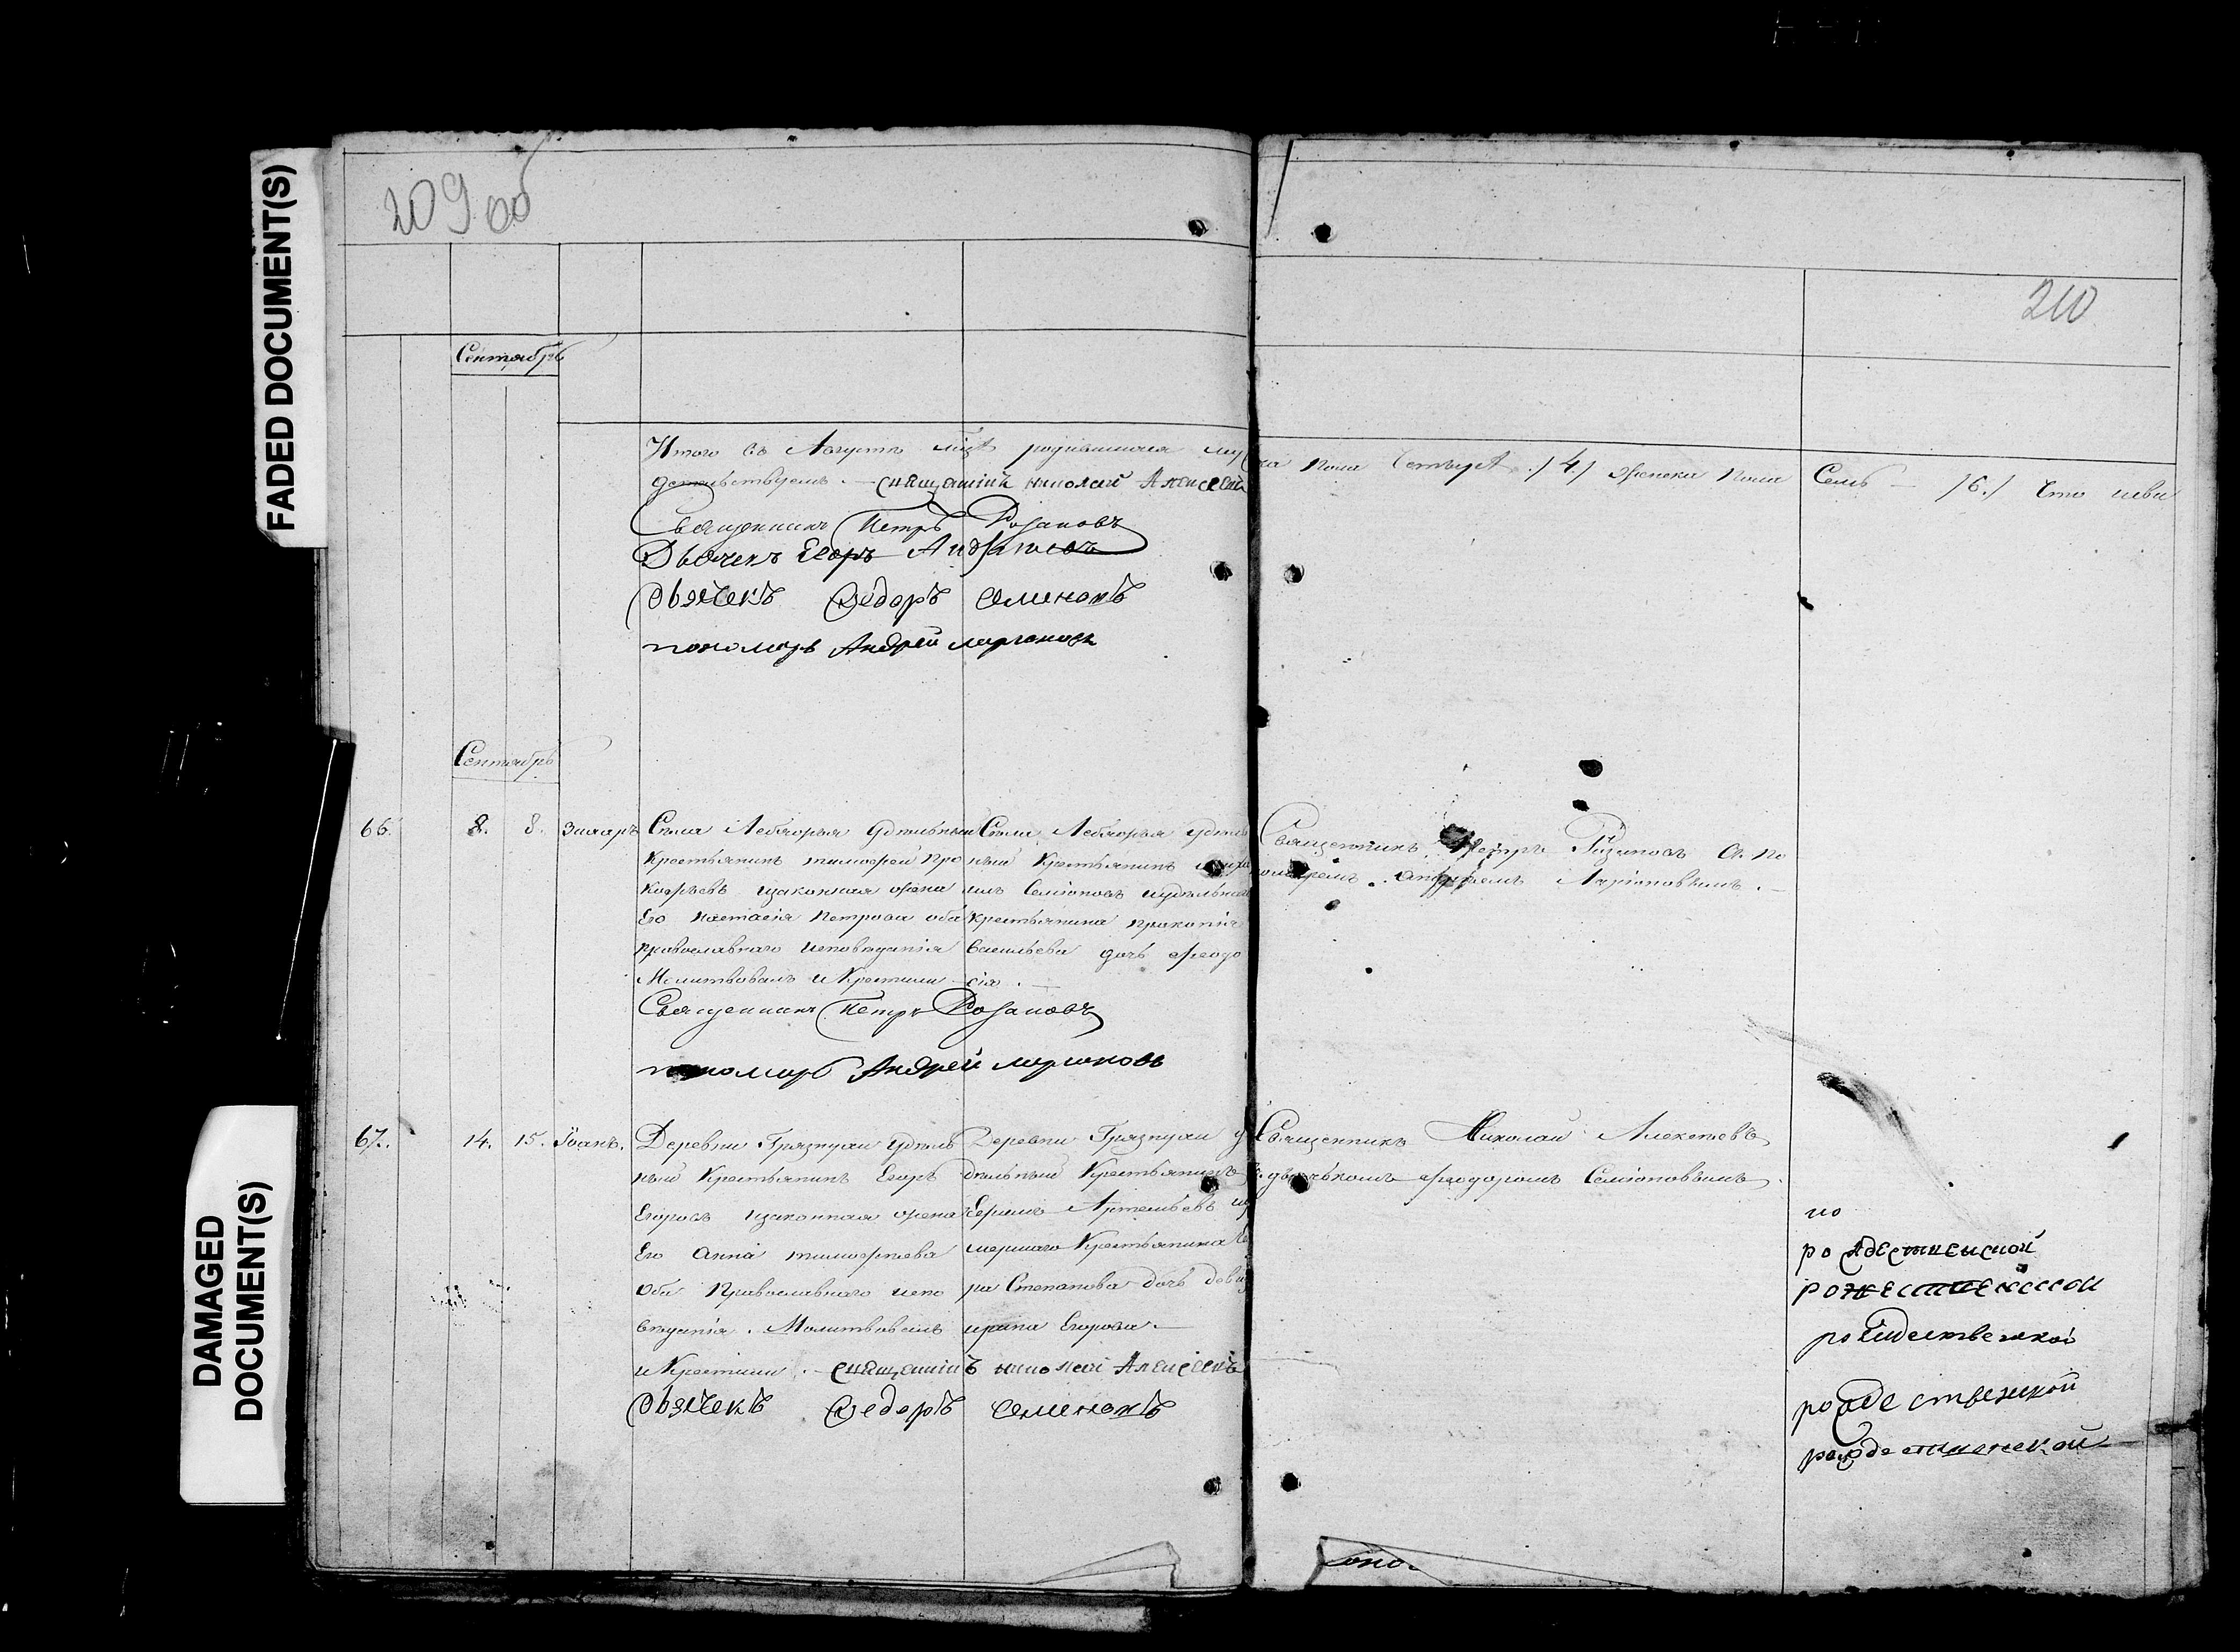 FADED DOCUMENT(S)
DAMAGED DOCUMENT(S)
209 об
210
Сентябрь
Итого въ Августѣ мцѣ родившихся муска пола Четыре /4/ женска пола Семь — /6./ Что свидѣтельствуемъ. — священникъ николай Алексеевъ
Священникъ Петръ Розановъ
Дьячекъ Егоръ
дьячекъ Федоръ Семеновъ
пономарь Андрей ларионовъ
Сентябрь
66. 8. 8. Захаръ
Села Лебяжья удѣльный
Крестьянинъ тимофей Про
кофьевъ изаконная жена
Его Настасія Петрова оба
православнаго исповѣданія
Молитвовалъ и Крестили
Села Лебяжья удѣль
ный Крестьянинъ
илъ Семіоновъ иудѣльнаго
крестьянина прокопія
Васильева дочь феодо
сія. —
Священникъ Петръ Розановъ съ по
номаремъ Андреемъ Ларіоновымъ. —
Священникъ Петръ Розановъ
пономарь Андрей ларионовъ
67. 14. 15. Іоанъ.
Деревни Грязнухи удѣль
ный Крестьянинъ Егоръ
Егоровъ изаконная жена
Его Анна тимофеева
Оба Православнаго испо
вѣданія. Молитвовалъ
и Крестили. —
Деревни Грязнухи у
дѣльный Крестьянинъ
Ефимъ Артемьевъ иу
мершаго Крестьянина Его
ра Степанова дочь деви
ца Егорова. —
Священникъ Николай Алексеевъ
съ дьячькомъ феодоромъ Семіоновымъ.
священникъ николай Алексеевъ
дьячекъ Федоръ Семеновъ
по
рождественской
рожественской
рождественской
рождественской
рождественской